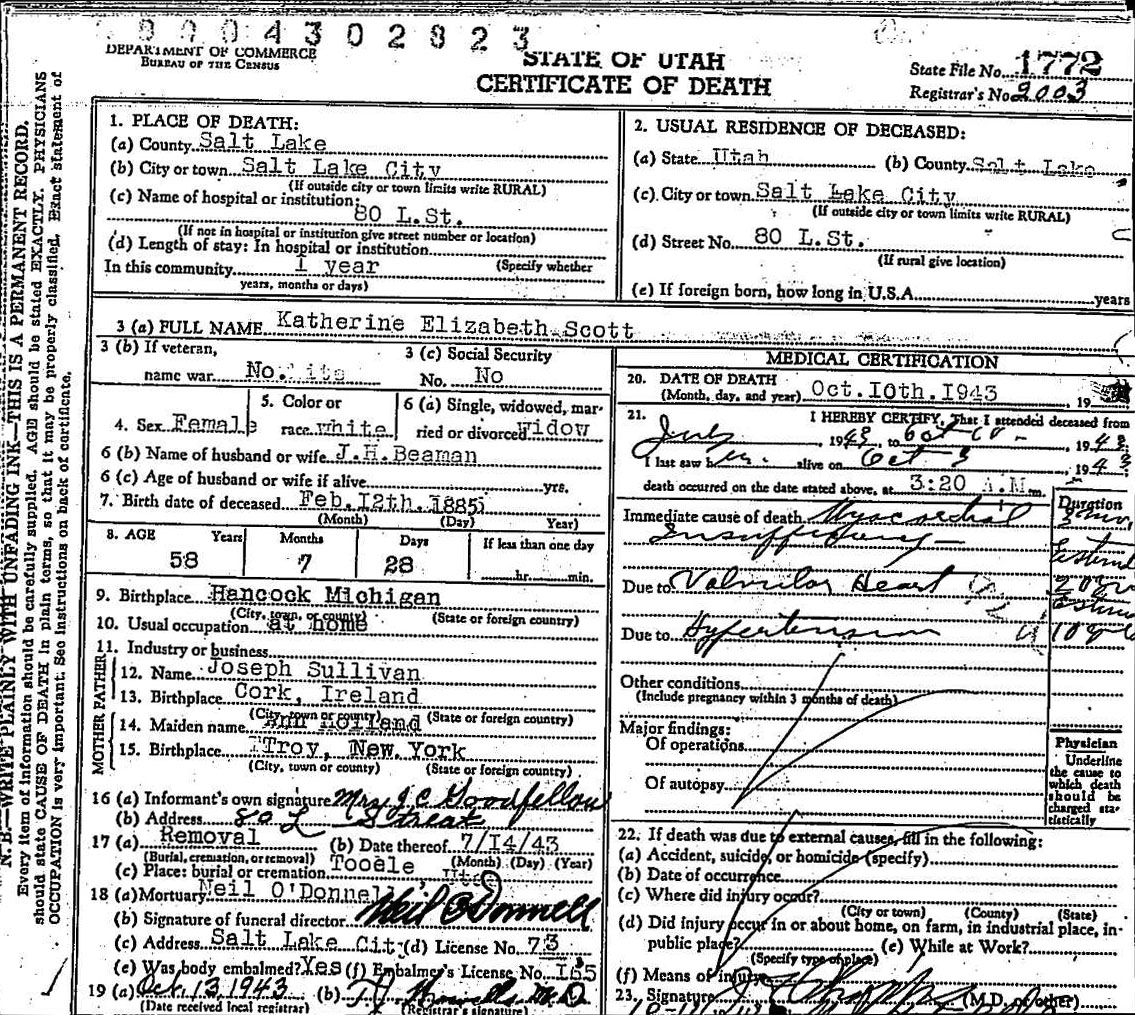 8 0 0 4 3 0 2 8 2 3
DEPARTMENT OF COMMERCE
BUREAU OF THE CENSUS
STATE OF UTAH
CERTIFICATE OF DEATH
State File No. 1772
Registrar's No. 2003
N. B.—WRITE PLAINLY WITH UNFADING INK—THIS IS A PERMANENT RECORD.
Every item of information should be carefully supplied. AGE should be stated EXACTLY. PHYSICIANS
should state CAUSE OF DEATH in plain terms, so that it may be properly classified. Exact statement of
OCCUPATION is very important. See instructions on back of certificate.
1. PLACE OF DEATH:
(a) County Salt Lake
(b) City or town Salt Lake City
(If outside city or town limits write RURAL)
(c) Name of hospital or institution:
80 L.St.
(If not in hospital or institution give street number or location)
(d) Length of stay: In hospital or institution
In this community 1 year (Specify whether
years, months or days)
2. USUAL RESIDENCE OF DECEASED:
(a) State Utah (b) County Salt Lake
(c) City or town Salt Lake City
(If outside city or town limits write RURAL)
(d) Street No. 80 L.St.
(If rural give location)
(e) If foreign born, how long in U.S.A. years
3 (a) FULL NAME Katherine Elizabeth Scott
3 (b) If veteran,
name war. No.
3 (c) Social Security
No. No
4. Sex Female
5. Color or
race white
6 (a) Single, widowed, mar-
ried or divorced Widow
6 (b) Name of husband or wife J.H.Beaman
6 (c) Age of husband or wife if alive yrs.
7. Birth date of deceased Feb.12th.1885
(Month) (Day) Year)
8. AGE Years Months Days If less than one day
58 7 28 hr. min.
9. Birthplace Hancock Michigan
(City, town, or county) (State or foreign country)
10. Usual occupation at home
11. Industry or business
FATHER
12. Name Joseph Sullivan
13. Birthplace Cork, Ireland
(City, town or county) (State or foreign country)
MOTHER
14. Maiden name Ann Holland
15. Birthplace Troy, New York
(City, town or county) (State or foreign country)
16 (a) Informant's own signature Mrs J C Goodfellow
(b) Address 80 L Street
17 (a) Removal (b) Date thereof 7/14/43
(Burial, cremation, or removal) (Month) (Day) (Year)
(c) Place: burial or cremation Tooele Utah
18 (a) Mortuary Neil O'Donnell
(b) Signature of funeral director Neil O'Donnell
(c) Address Salt Lake City (d) License No. 73
(e) Was body embalmed? Yes (f) Embalmer's License No. 165
19 (a) Oct. 13, 1943 (b) M.D.
(Date received local registrar) (Registrar's signature)
MEDICAL CERTIFICATION
20. DATE OF DEATH
(Month, day, and year) Oct.10th.1943 , 19
21. I HEREBY CERTIFY, That I attended deceased from
July , 1943, to Oct 10 - , 1943
I last saw her alive on Oct 3 , 1943
death occurred on the date stated above, at 3:20 A.M.
Duration
Immediate cause of death Myocardial
Insufficiency
Due to Valvular Heart
Due to Hypertension
Other conditions
(Include pregnancy within 3 months of death)
Major findings:
Of operations
Of autopsy
Physician
Underline
the cause to
which death
should be
charged sta-
tistically
22. If death was due to external causes, fill in the following:
(a) Accident, suicide, or homicide (specify)
(b) Date of occurrence
(c) Where did injury occur?
(City or town) (County) (State)
(d) Did injury occur in or about home, on farm, in industrial place, in-
public place? (e) While at Work?
(Specify type of place)
(f) Means of injury
23. Signature (M.D. or other)